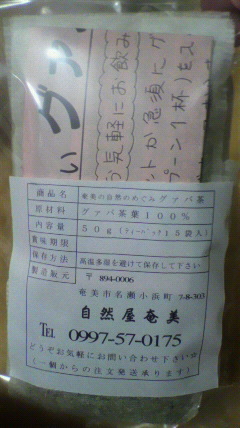 いグァバ
お気軽にお飲み
ットか急須にグ
プーン1杯)をス
商品名 奄美の自然のめぐみグァバ茶
原材料 グァバ茶葉100%
内容量 50g(ティーバック15袋入)
賞味期限
保存方法 高温多湿を避けて保存して下さい
製造販元 〒894-0006
奄美市名瀬小浜町 7-8-303
自然屋奄美
TEL 0997-57-0175
どうぞお気軽にお問い合わせ下さい
(一個からの注文発送承ります)